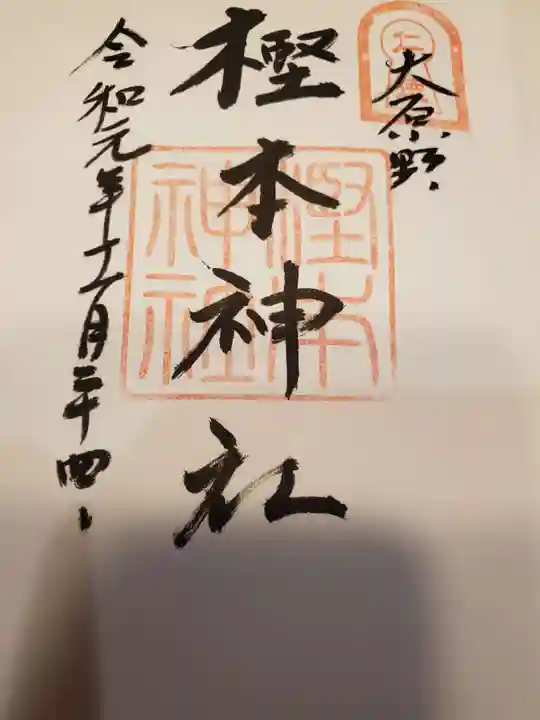 大原野
樫本神社
令和元年十一月二十四日
樫本神社